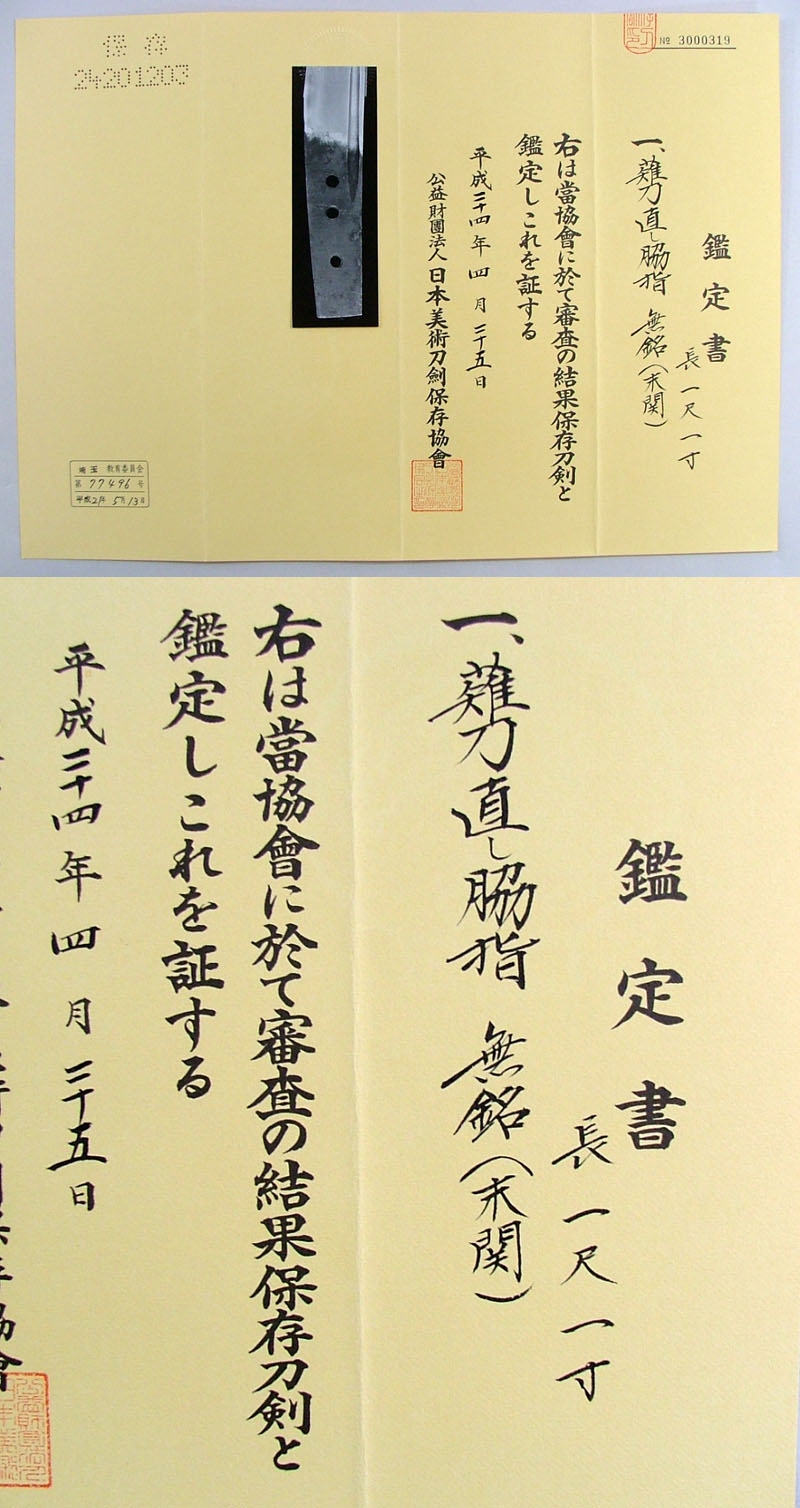 № 3000319
鑑定書
長一尺一寸
一、薙刀直し脇指 無銘(末関)
右は當協會に於て審査の結果保存刀剣と
鑑定しこれを証する
平成二十四年四月二十五日
公益財團法人日本美術刀劍保存協會
保存
24201203
埼玉 教育委員会
第77496号
平成2年5月13日
鑑定書
長一尺一寸
一、薙刀直し脇指 無銘(末関)
右は當協會に於て審査の結果保存刀剣と
鑑定しこれを証する
平成二十四年四月二十五日